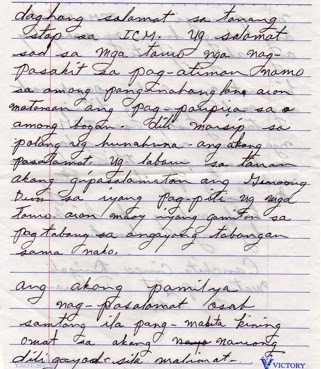 daghang salamat sa tanang
stap sa ICM. Ug salamat
sad sa mga tawo nga nag-
pasakit sa pag-atiman namo
sa among panginahanglans aron
matoman ang pag-paopira sa
among bogan. dili maisip sa
polong ug hunahuna - ang akong
pasalamat. Ug labaw sa tanan
akong gipasalamatan ang Ginoong
Dios sa iyang pag-pili ug mga
tawo aron maoy iyang gamiton sa
pagtabang sa angayang tabangan
sama nako.
ang akong pamilya
nag-pasalamat osab
samtang ila pang-makita kining
omat sa akong nawong
dili gayod sila malimat-
VICTORY